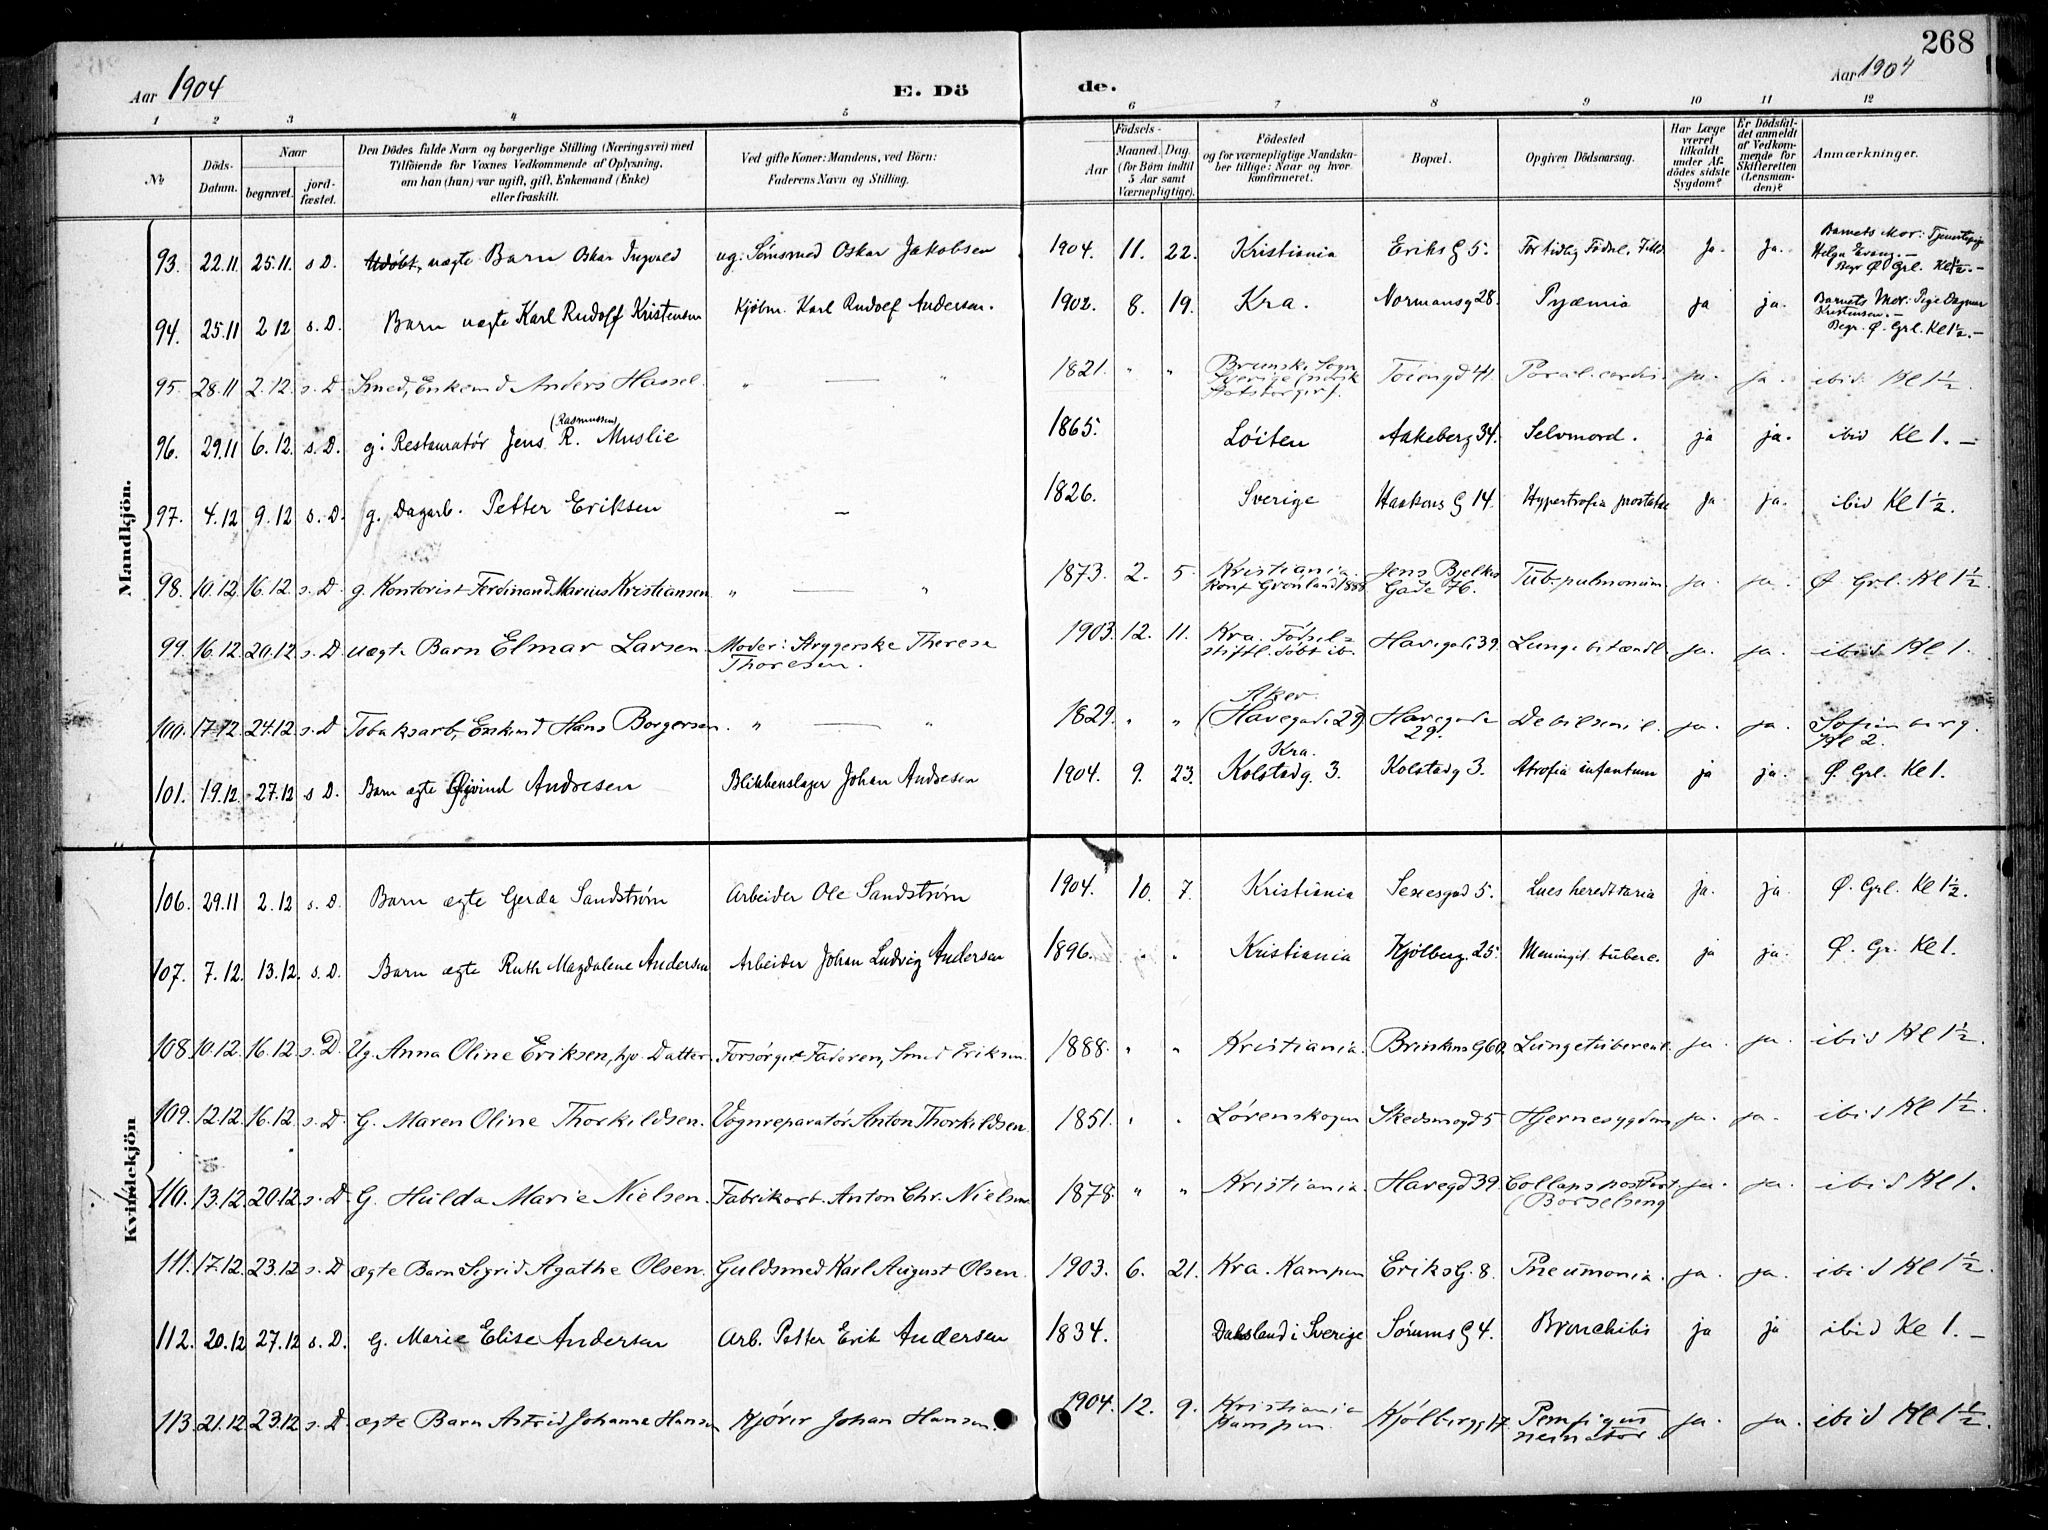 268
Aar 1904
E. Dö de.
Aar 1904
1 2 3 4 5 6 7 8 9 10 11 12
No.
Döds-Datum.
Naar
begravet.
jord-fæstet.
Den Dödes fulde Navn og borgerlige Stilling (Næringsvei) med
Tilföiende for Voxnes Vedkommende af Oplysning,
om han (hun) var ugift, gift, Enkemand (Enke)
eller fraskilt.
Ved gifte Koner: Mandens, ved Börn:
Faderens Navn og Stilling.
Födsels-
Aar
Maaned. Dag.
(for Börn indtil
5 Aar samt
Værnepligtige).
Födested
og for værnepligtige Mandska-
ber tillige: Naar og hvor
konfirmeret.
Bopæl.
Opgiven Dödsaarsag.
Har Læge
været
tilkaldt
under Af-
dödes sidste
Sygdom?
Er Dödsfal-
det anmeldt
af Vedkom-
mende for
Skifteretten
(Lensman-
den)?
Anmærkninger.
Mandkjön.
93. 22.11 25.11. s.D. Udøbt, uægte Barn Oskar Ingvald ug. Sømsmed Oskar Jakobsen 1904. 11. 22. Kristiania Eriks G 5. For tidlig Fødsel. ja. ja. Barnets Mor: Tjenestepige
Helga Evang. —
Begr Ø Grl. Kl 1½. —
94. 25.11 2.12 s.D. Barn uægte Karl Rudolf Kristensen Kjøbm. Karl Rudolf Andersen. 1902. 8. 19. Kra. Normansg 28. Pyæmia ja ja. Barnets Mor: Pige Dagmar
Kristensen. —
Begr. Ø. Grl. Kl 1½. —
95. 28.11 2.12. s.D Smed, Enkemd Anders Hassel. " — " 1821. " " Brunsk. Sogn
Sverige (norsk
Statsborger). Tøiengd 41. Paral. cordis ja. ja. ibid Kl 1½.
96. 29.11 6.12. s.D. g. Restauratør Jens (Rasmussen) R. Muslie 1865. Løiten Aakeberg 34. Selvmord. ja ja. ibid Kl 1. —
97. 4.12 9.12 s.D. g. Dagarb. Petter Eriksen — 1826. Sverige Haakons G 14. Hypertrofia prostatae ja ja. ibid Kl 1½.
98. 10.12. 16.12. s.D g. Kontorist Ferdinand Marius Kristiansen " — " 1873. 2. 5. Kristiania.
Konf Grønland 1888 Jens Bjelkes
Gade 76. Tub. pulmonum ja. ja. Ø Grl. Kl 1½.
99. 16.12. 20.12. s.D uægte Barn Elmar Larsen Moder: Strygerske Therese
Thoresen. 1903. 12. 11. Kra. Fødsel-
stiftl. døbt ib. Havegade 39. Lungebetændl. ja. ja. ibid Kl 1.
100. 17.12. 24.12. s.D Tobaksarb, Enkemd Hans Borgersen. " — " 1829. " " Aker.
(Havegade 29) Havegade
29. Debil senil. ja. ja. Sofienberg.
Kl 2.
101. 19.12. 27.12 s D. Barn ægte Øivind Andresen Blikkenslager Johan Andresen 1904. 9. 23. Kra.
Kolstadg. 3. Kolstadg 3. Atrofia infantum ja ja. Ø. Grl. Kl 1.
Kvindekjön
106. 29.11 2.12 s.D. Barn ægte Gerda Sandstrøm Arbeider Ole Sandstrøm 1904. 10. 7. Kristiania 5. Lues hereditaria ja. ja Ø. Grl. Kl 1½.
107. 7.12. 13.12. s.D. Barn ægte Ruth Magdalene Andersen Arbeider Johan Ludvig Andersen 1896. " " Kristiania Kjølberg. 25. Meningit. tuberc. ja ja. Ø. Gr. Kl 1.
108. 10.12. 16.12 s.D. Ug. Anna Oline Eriksen, hjv. Datter. Forsørger Faderen, Smed Eriksen. 1888. " " Kristiania. Brinkens G 60. Lungetubercul. ja. ja. ibid Kl 1½.
109. 12.12. 16.12. s.D G. Maren Oline Thorkildsen. Vognreparatør Anton Thorkildsen. 1851. " " Lørenskogen Skedsmogd 5 Hjernesygdom ja. ja. ibid Kl 1½.
110. 13.12. 20.12. s.D G. Hulda Marie Nielsen. Fabrikarb. Anton Chr. Nielsen 1878. " " Kristiania. Havegd 39. Collaps post Part
(Barselseng ja. ja. ibid Kl 1.
111. 17.12. 23.12 s.D ægte Barn Sigrid Agathe Olsen. Guldsmed Karl August Olsen. 1903. 6. 21. Kra. Kampen Eriks G. 8. Pneumonia. ja. ja. ibid Kl 1½.
112. 20.12 27.12 s.D. G. Marie Elise Andersen Arb. Petter Erik Andersen 1834. Dalsland i Sverige Sørums G 4. Bronchitis ja ja ibid Kl 1. —
113. 21.12 23.12 s.D ægte Barn Astrid Johanne Hansen Kjører Johan Hansen. 1904. 12. 9. Kristiania
Kampen. Kjølbergg 17. Pemfigus
neonator. ja. ja. ibid Kl 1½.